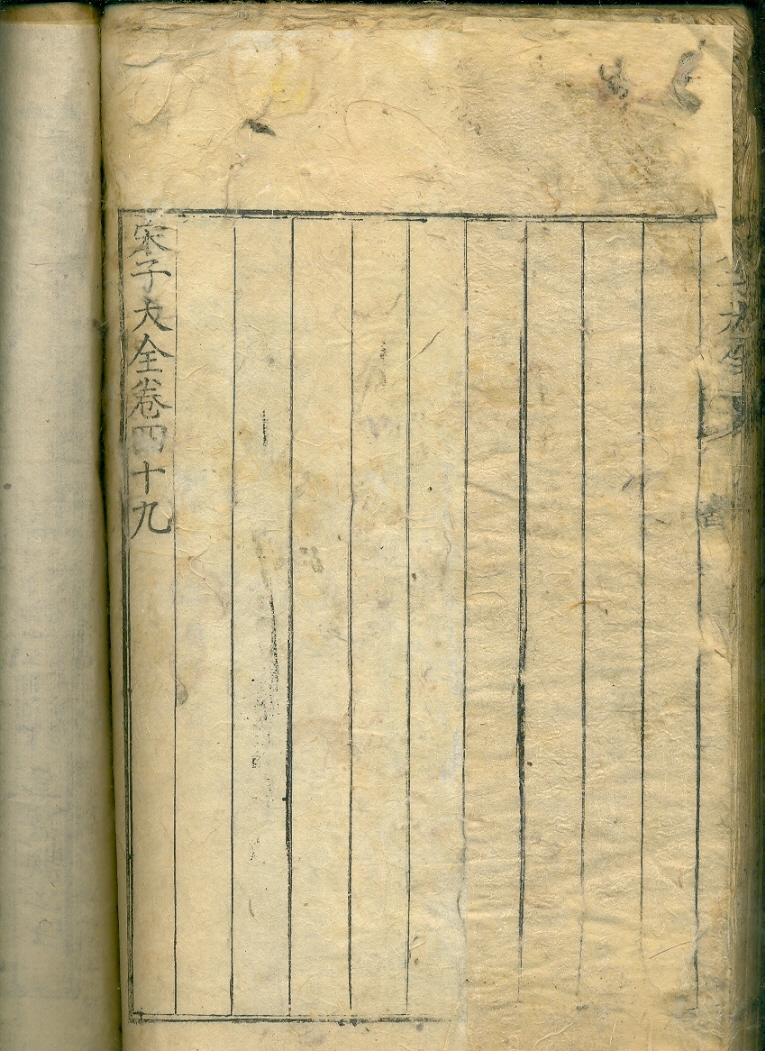 宋子大全卷四十九